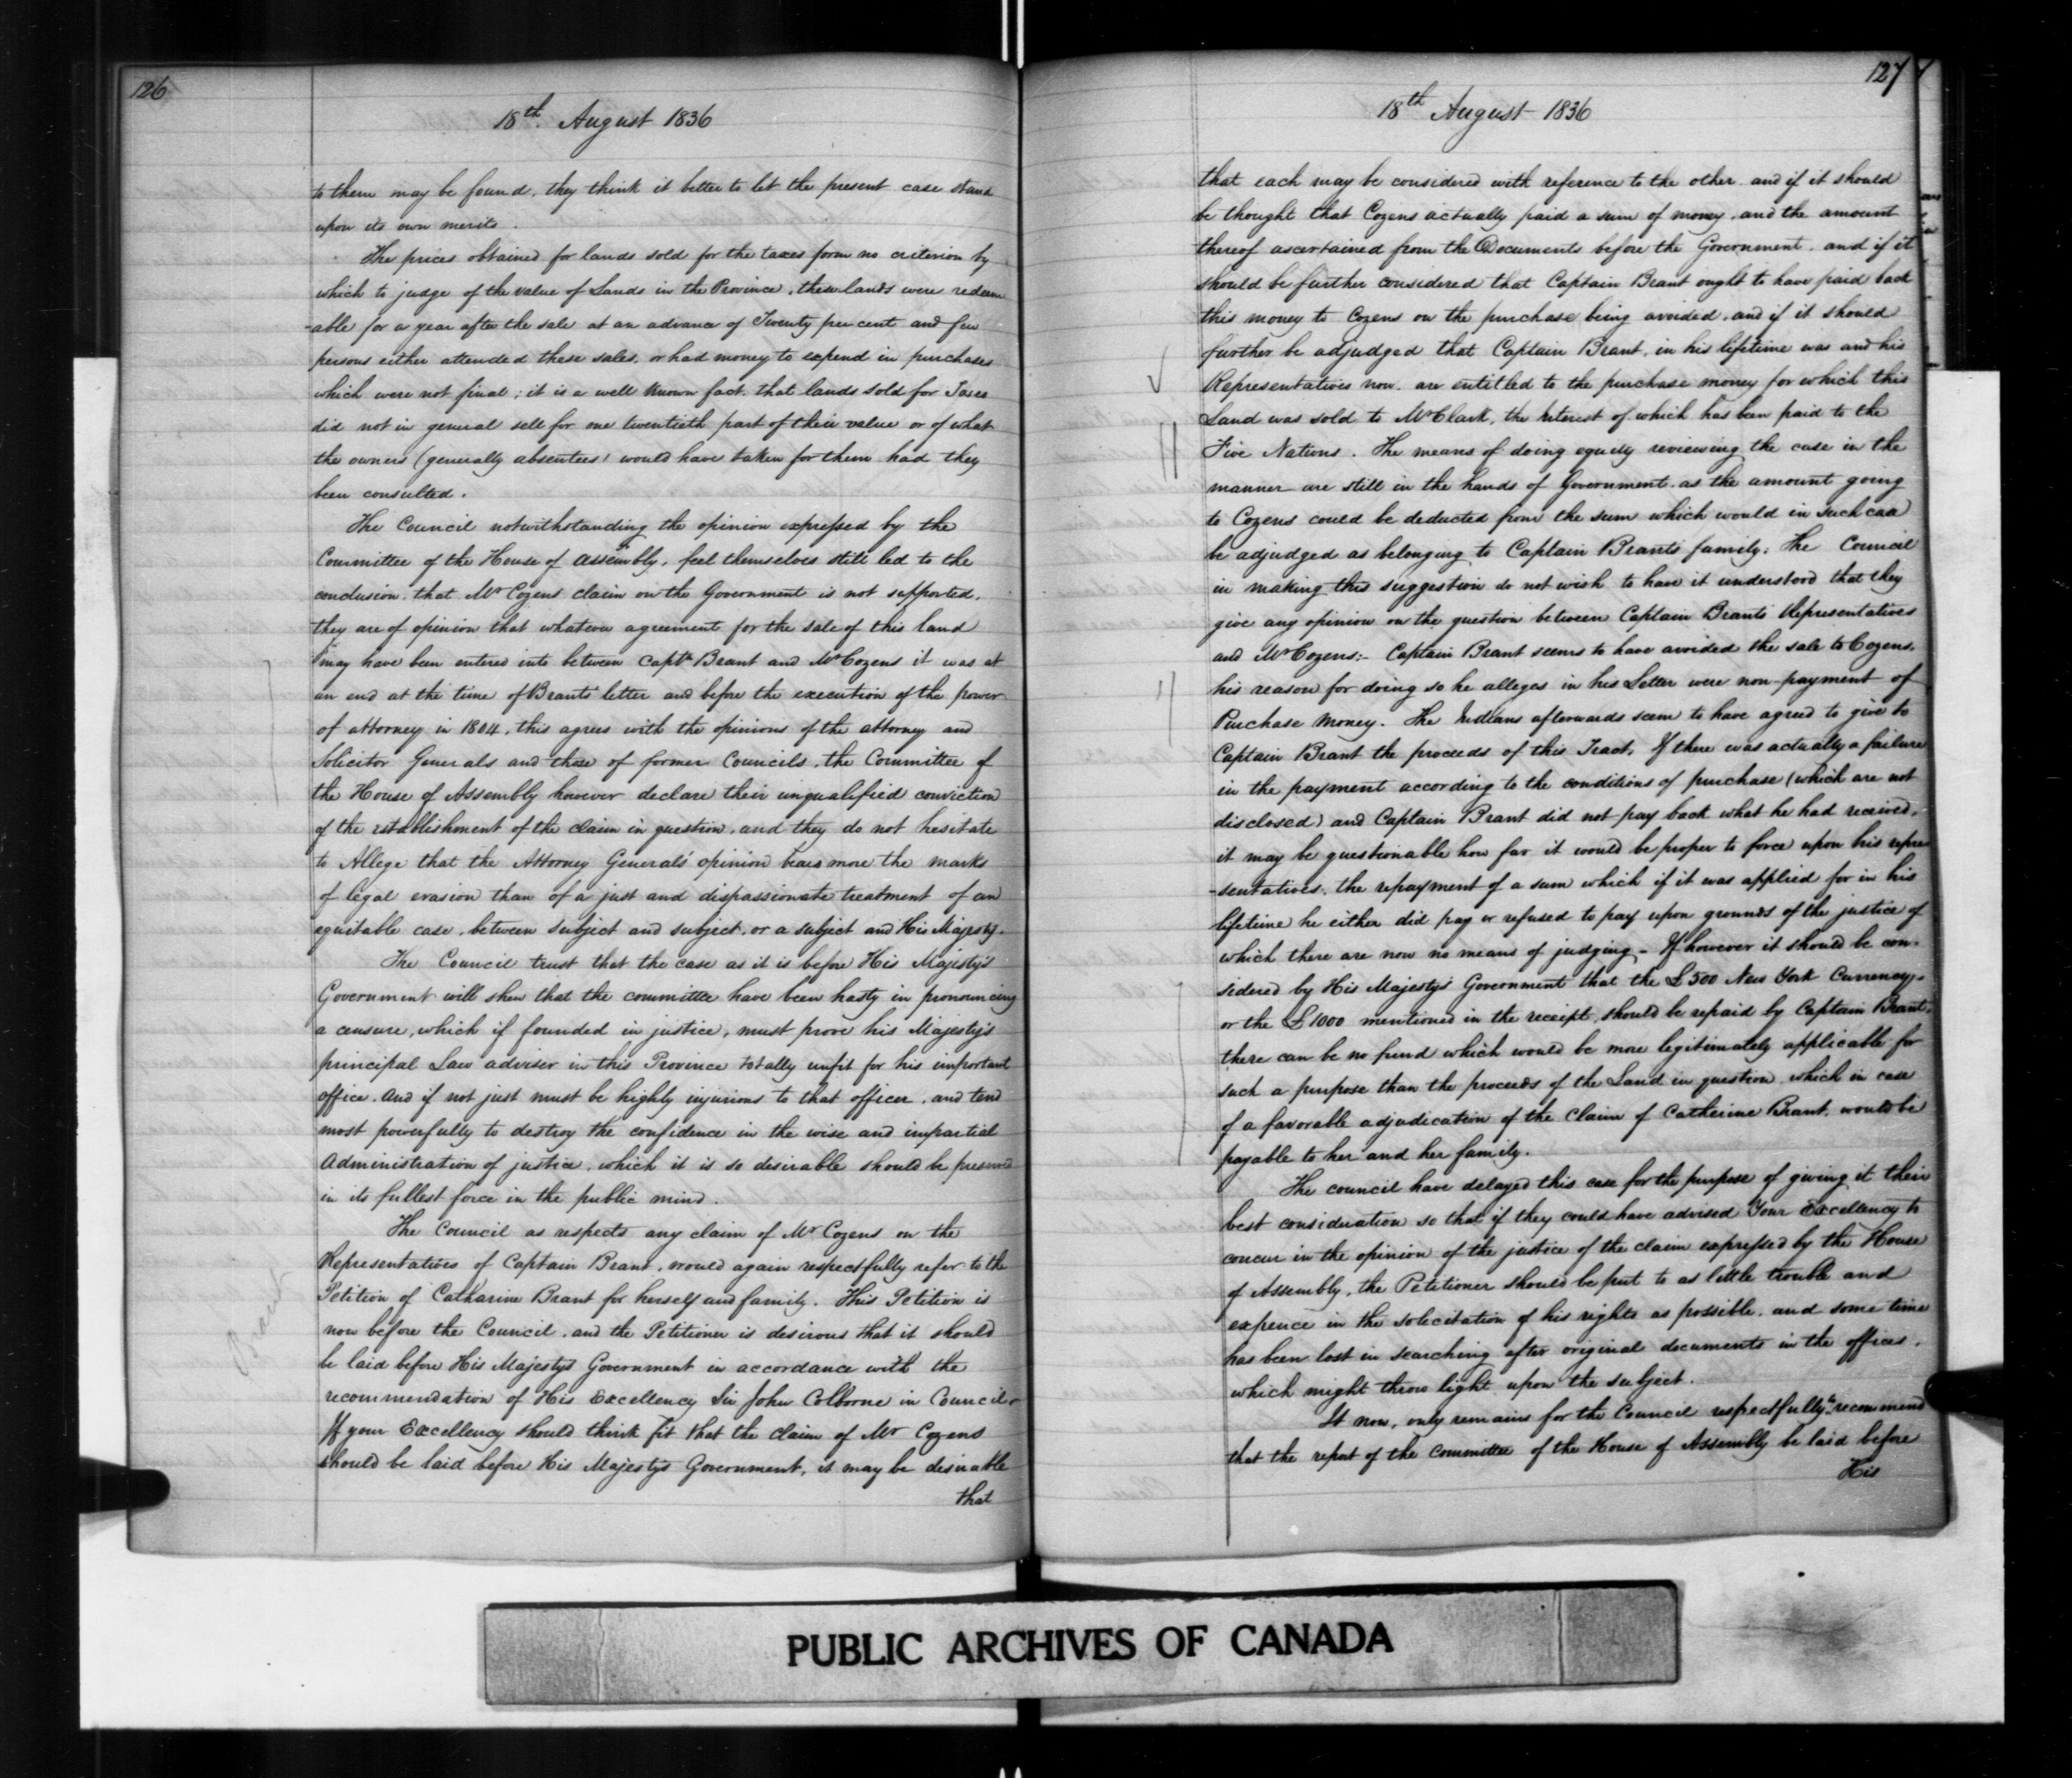 126
18th. August 1836
to them may be found, they think it better to let the present case stand
upon its own merits.
The prices obtained for lands sold for the taxes form no criterion by
which to judge of the value of Lands in the Province, these lands were redeem
-able for a year after the sale at an advance of Twenty per cent and few
persons either attended these sales, or had money to expend in purchases
which were not final; it is a well known fact, that lands sold for Taxes
did not in general sell for one twentieth part of their value or of what
the owners (generally absentees) would have taken for them had they
been consulted.
The Council notwithstanding the opinion expressed by the
Committee of the House of Assembly, feel themselves still led to the
conclusion that Mr Cozens claim on the Government is not supported,
they are of opinion that whatever agreement for the sale of this land
may have been entered into between Captn Brant and Mr Cozens it was at
an end at the time of Brants letter and before the execution of the power
of attorney in 1804, this agrees with the opinions of the attorney and
Solicitor Generals and those of former Councils, the Committee of
the House of Assembly however declare their unqualified conviction
of the establishment of the claim in question, and they do not hesitate
to Allege that the Attorney Generals' opinion bears more the marks
of legal evasion than of a just and dispassionate treatment of an
equitable case, between subject and subject, or a subject and His Majesty.
The Council trust that the case as it is before His Majesty's
Government will shew that the committee have been hasty in pronouncing
a censure, which if founded in justice, must prove his Majesty's
principal Law adviser in this Province totally unfit for his important
office. And if not just must be highly injurious to that officer, and tend
most powerfully to destroy the confidence in the wise and impartial
Administration of justice, which it is so desirable should be preserved
in its fullest force in the public mind.
The Council as respects any claim of Mr Cozens on the
Representatives of Captain Brant, would again respectfully refer to the
Petition of Catharine Brant for herself and family. This Petition is
now before the Council, and the Petitioner is desirous that it should
be laid before His Majestys Government in accordance with the
recommendation of His Excellency Sir John Colborne in Council.
If your Excellency should think fit that the claim of Mr Cozens
should be laid before His Majestys Government, it may be desirable
that
Brant
127
18th August 1836
that each may be considered with reference to the other and if it should
be thought that Cozens actually paid a sum of money, and the amount
thereof ascertained from the Documents before the Government, and if it
should be further considered that Captain Brant ought to have paid back
this money to Cozens on the purchase being avoided, and if it should
further be adjudged that Captain Brant, in his lifetime was and his
Representatives now are entitled to the purchase money for which this
Land was sold to Mr Clark, the Interest of which has been paid to the
Five Nations. The means of doing equity reviewing the case in the
manner are still in the hands of Government as the amount going
to Cozens could be deducted from the sum which would in such case
be adjudged as belonging to Captain Brants family. The Council
in making this suggestion do not wish to have it understood that they
give any opinion on the question between Captain Brants Representatives
and Mr Cozens:- Captain Brant seems to have avoided the sale to Cozens,
his reason for doing so he alleges in his Letter were non-payment of
Purchase Money. The Indians afterwards seem to have agreed to give to
Captain Brant the proceeds of this Tract. If there was actually a failure
in the payment according to the conditions of purchase (which are not
disclosed) and Captain Brant did not pay back what he had received,
it may be questionable how far it would be proper to force upon his repre
-sentatives, the repayment of a sum which if it was applied for in his
lifetime he either did pay or refused to pay upon grounds of the justice of
which there are now no means of judging - If however it should be con-
sidered by His Majestys Government that the £500 New York Currency,
or the £1000 mentioned in the receipt, should be repaid by Captain Brant,
there can be no fund which would be more legitimately applicable for
such a purpose than the proceeds of the Land in question, which in case
of a favorable adjudication of the Claim of Catherine Brant, would be
payable to her and her family.
The council have delayed this case for the purpose of giving it their
best consideration so that if they could have advised Your Excellency to
concur in the opinion of the justice of the claim expressed by the House
of Assembly, the Petitioner should be put to as little trouble and
expence in the solicitation of his rights as possible, and some time
has been lost in searching after original documents in the offices,
which might throw light upon the subject.
It now, only remains for the Council respectfully to recommend
that the report of the Committee of the House of Assembly be laid before
His
PUBLIC ARCHIVES OF CANADA